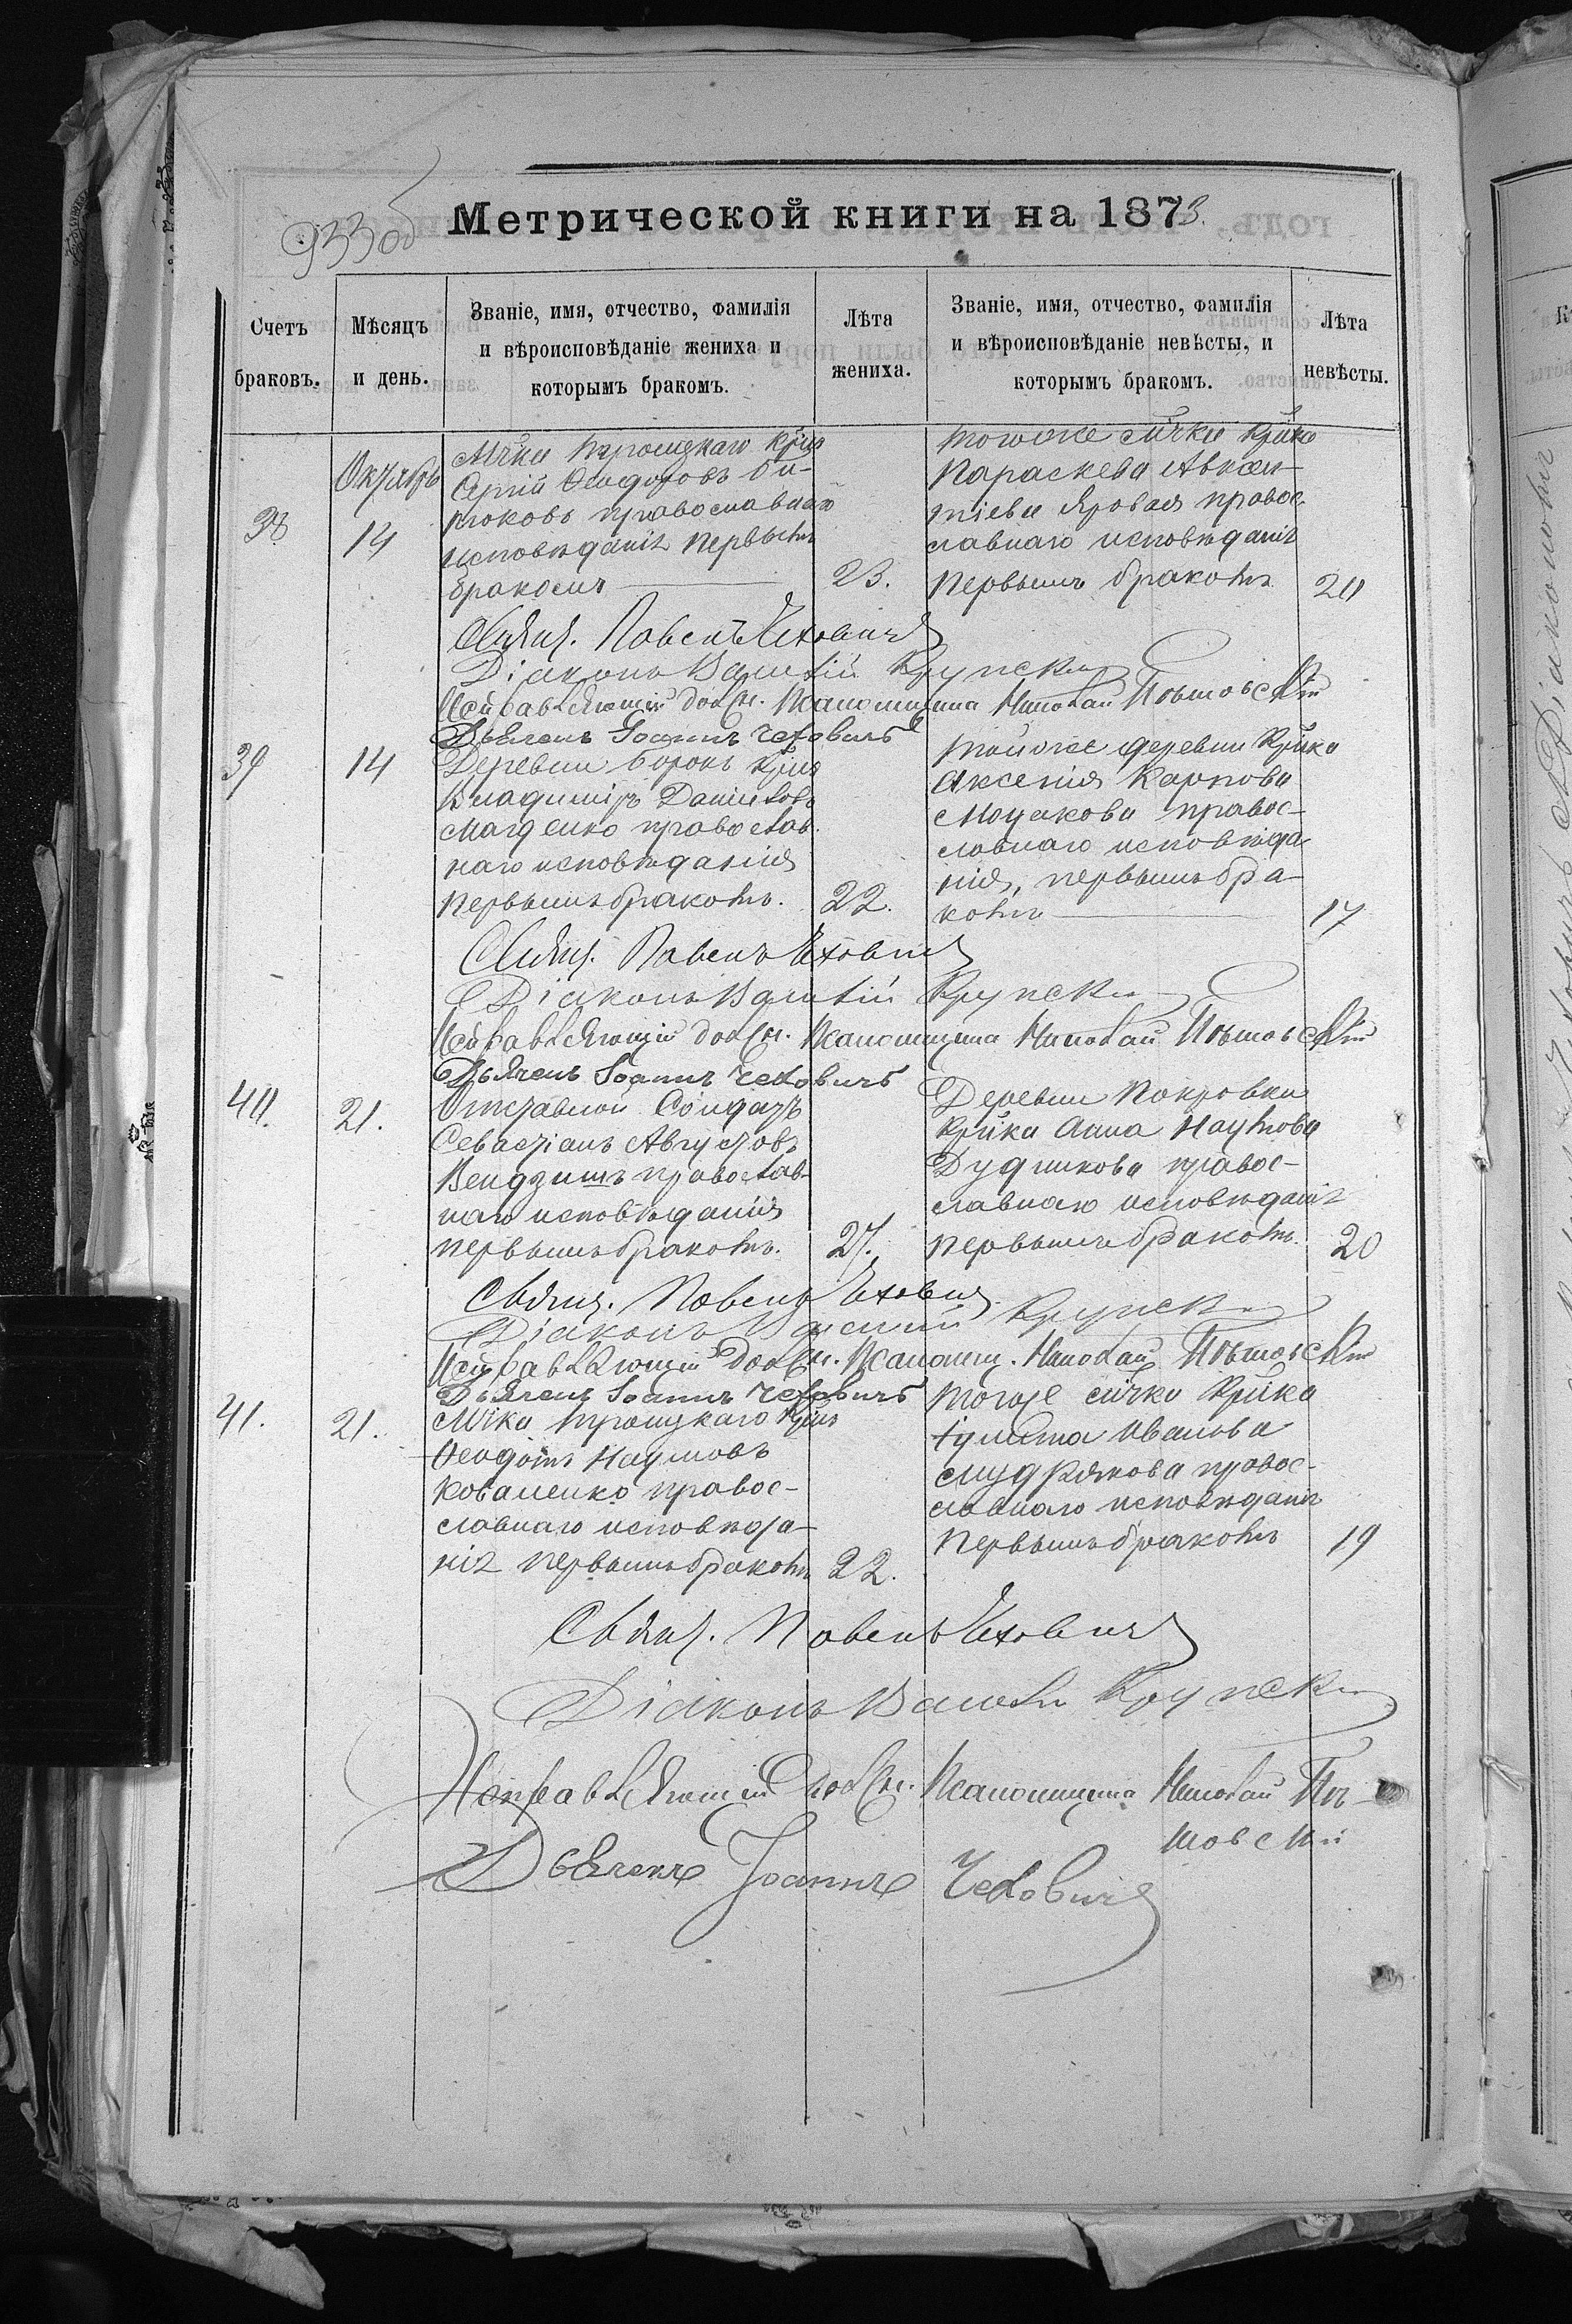 933 об
Метрической книги на 1873.
Счетъ браковъ.
Мѣсяцъ и день.
Званіе, имя, отчество, фамилія и вѣроисповѣданіе жениха и которымъ бракомъ.
Лѣта жениха.
Званіе, имя, отчество, фамилія и вѣроисповѣданіе невѣсты, и которымъ бракомъ.
Лѣта невѣсты.
38
Октябрь
14
М҃чка Троицкаго
Сергій Ѳеодоровъ Би-
рюковъ православнаго
исповѣданія первымъ
бракомъ
23.
тогоже
Параскева Авксен-
тіева Яровая правос-
лавнаго исповѣданія
первымъ бракомъ
20
Свящ. Павелъ Чеховичъ
Діаконъ Василій Крупскій
Исправляющій долж. Псаломщика Николай
Дьячекъ Іоаннъ Чеховичъ
39
14
Деревни Борокъ
Владиміръ Даніиловъ
Магденко православ-
наго исповѣданія
первымъ бракомъ.
22.
тойже деревни
Аксенія Карпова
Моцакова правос-
лавнаго исповѣда
нія, первымъ бра-
комъ
17
Свящ. Павелъ Чеховичъ
Діаконъ Василій Крупскій
Исправляющій долж. Псаломщика Николай
Дьячекъ Іоаннъ Чеховичъ
40.
21.
Отставной Солдатъ
Севастіанъ Августовъ
Вендзишъ православ-
наго исповѣданія
первымъ бракомъ.
27.
Деревни Покровки
Анна Наумова
Дудникова правос-
лавнаго исповѣданія
первымъ бракомъ.
20
Свящ. Павелъ Чеховичъ
Діаконъ Василій Крупскій
Исправляющій долж. Псаломщ. Николай
Дьячекъ Іоаннъ Чеховичъ
41.
21.
Троицкаго
Ѳеодотъ Наумовъ
Коваленко правос-
лавнаго исповѣда-
нія первымъ бракомъ
22.
тогоже
Іулитта Иванова
Мудрякова правос-
лавнаго исповѣданія
первымъ бракомъ
19
Свящ. Павелъ Чеховичъ
Діаконъ Василій Крупскій
Исправляющій долж. Псаломщика Николай
Дьячекъ Іоаннъ Чеховичъ